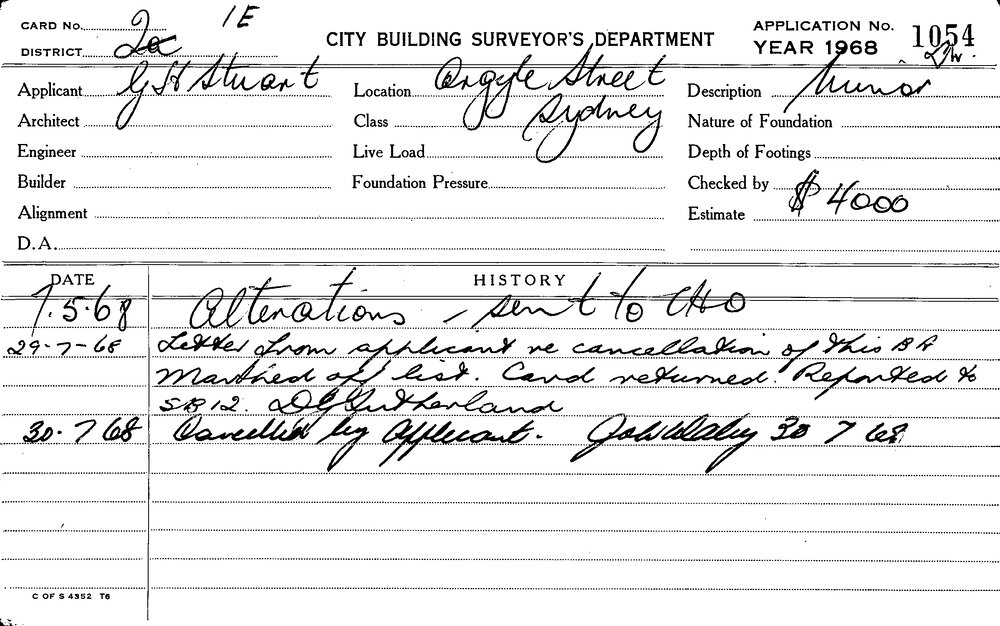 CARD No. 2 1E
DISTRICT 2a
CITY BUILDING SURVEYOR'S DEPARTMENT
APPLICATION No. 1054
YEAR 1968
Applicant G H Stuart
Location Argyle Street
Description Minor
Architect
Class Sydney
Nature of Foundation
Engineer
Live Load
Depth of Footings
Builder
Foundation Pressure
Checked by
Alignment
Estimate $ 4000
D.A.
DATE HISTORY
7.5.68 Alterations - sent to CHO
29-7-68 Letter from applicant re cancellation of this BA
Marked off list. Card returned. Reported to
SB12. D G Sutherland
30.7 68 Cancelled by Applicant. 30 7 68
C OF S 4352 T6